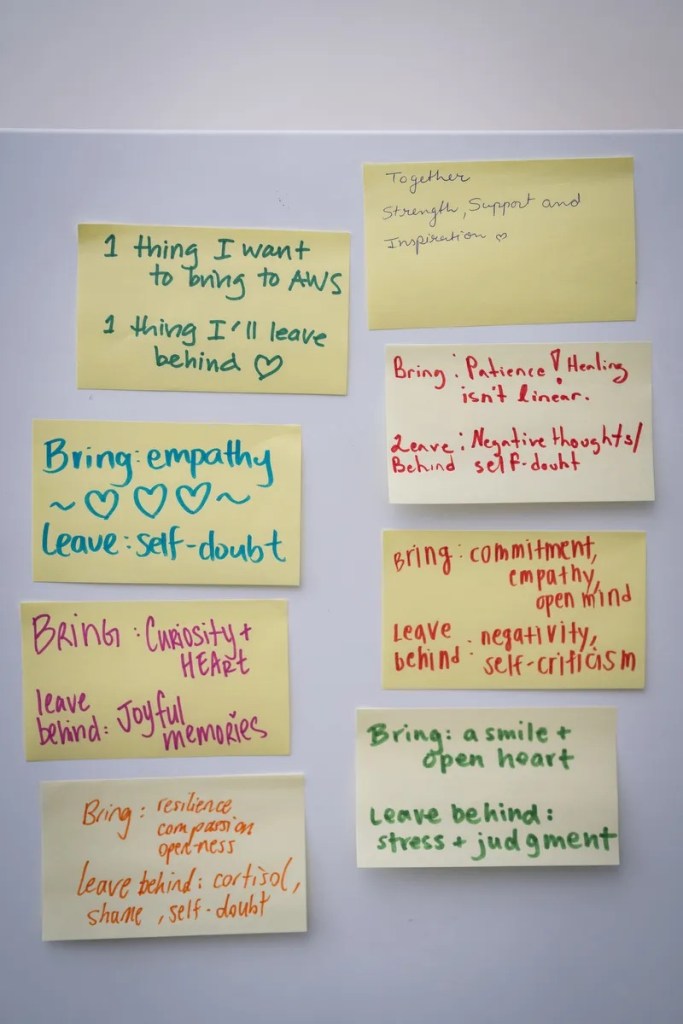 1 thing I want
to bring to AWS
1 thing I'll leave
behind ♡
Together
Strength, Support and
Inspiration ♡
Bring: empathy
~ ♡ ♡ ♡ ~
Leave: self-doubt
Bring: Patience! Healing
isn't linear.
Leave: Negative thoughts/
Behind self-doubt
BRING: CURIOSITY +
HEART
leave
behind: Joyful
memories
Bring: commitment,
empathy,
open mind
Leave
behind: negativity,
self-criticism
Bring: resilience
compassion
openness
leave behind: cortisol,
shame, self-doubt
Bring: a smile +
open heart
Leave behind:
stress + judgment